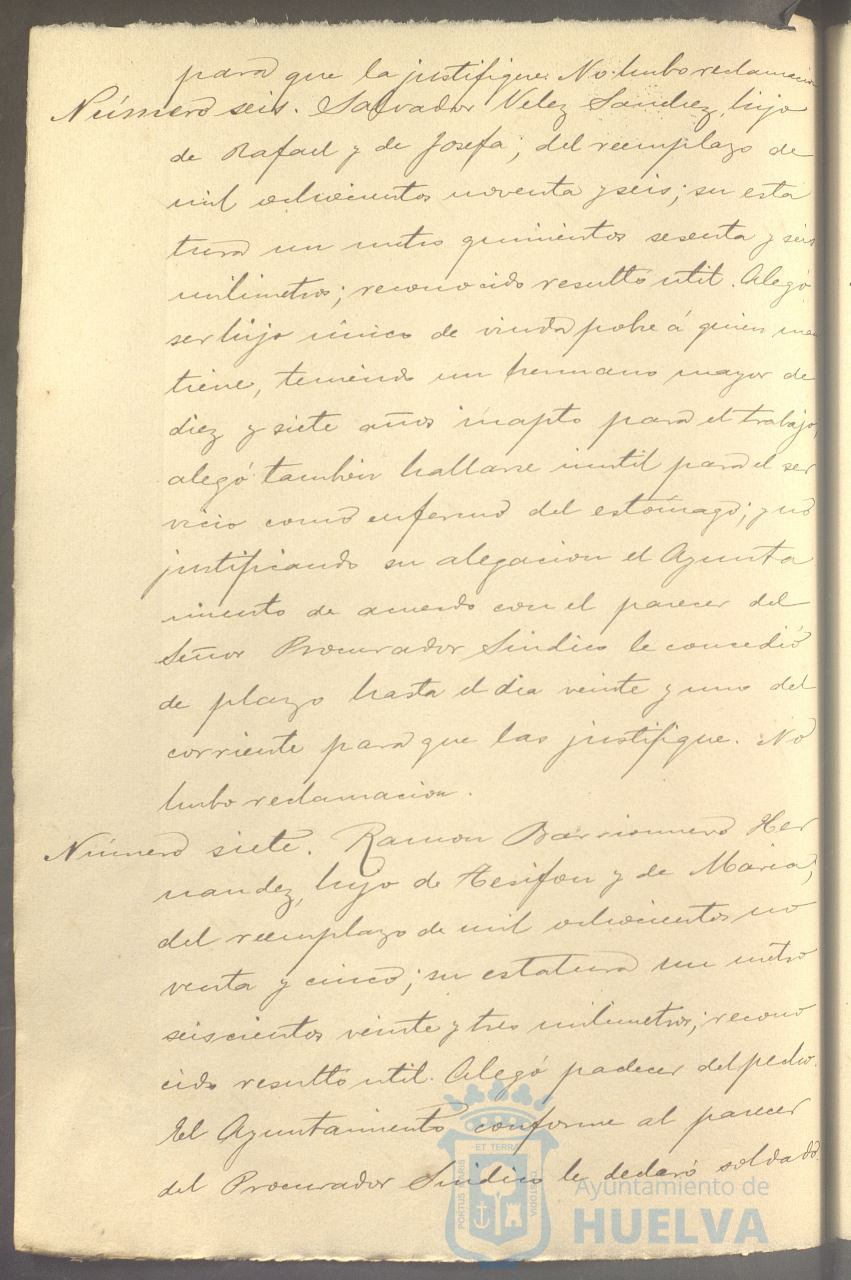 para que la justifique. No hubo reclamacion
Número seis. Salvador Velez Sanchez, hijo
de Rafael y de Josefa; del reemplazo de
mil ochocientos noventa y seis; su esta
tura un metro quinientos sesenta y seis
milimetros; reconocido resultó util. Alegó
ser hijo único de viuda pobre á quien man
tiene, teniendo un hermano mayor de
diez y siete años inapto para el trabajo,
alegó tambien hallarse inutil para el ser
vicio como enfermo del estómago; y no
justificando su alegacion el Ayunta
miento de acuerdo con el parecer del
Señor Procurador Sindico le concedió
de plazo hasta el dia veinte y uno del
corriente para que las justifique. No
hubo reclamacion.
Número siete. Ramon Barrionuevo Her
nandez, hijo de Tesifon y de Maria,
del reemplazo de mil ochocientos no
venta y cinco; su estatura un metro
seiscientos veinte y tres milimetros; recono
cido resultó util. Alegó padecer del pecho.
El Ayuntamiento conforme al parecer
del Procurador Sindico le declaró soldado.
ET TERRA
PORTUS MARIS
CUSTODIA
Ayuntamiento de
HUELVA